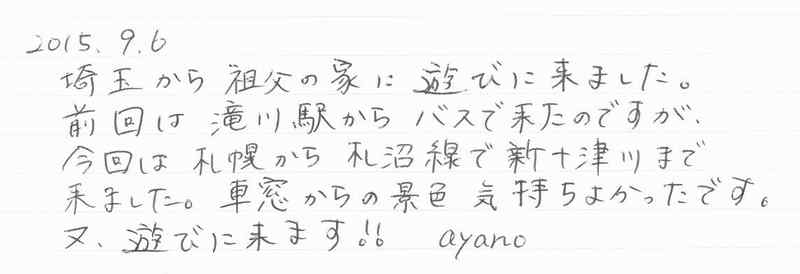 2015.9.6
埼玉から祖父の家に遊びに来ました。
前回は滝川駅からバスで来たのですが、
今回は札幌から札沼線で新十津川まで
来ました。車窓からの景色気持ちよかったです。
又、遊びに来ます!! ayano